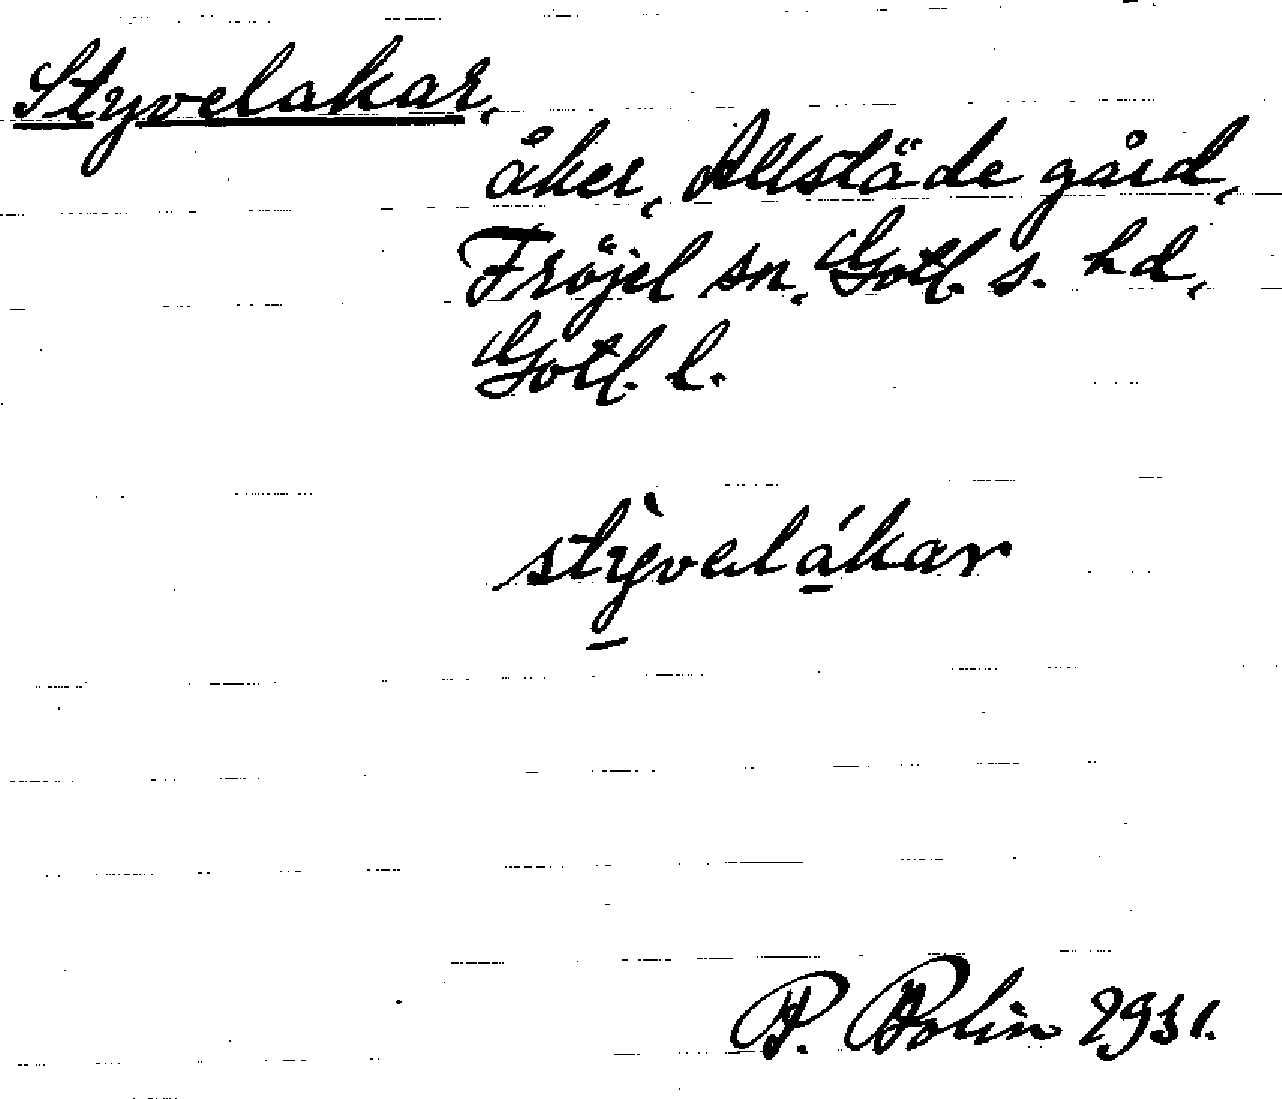 Styvelakar,
åker, Allstäde gård,
Fröjel sn. Gotl. s. hd,
Gotl. l.
stỳ̱velá̱kar
P. Bolin 1931.